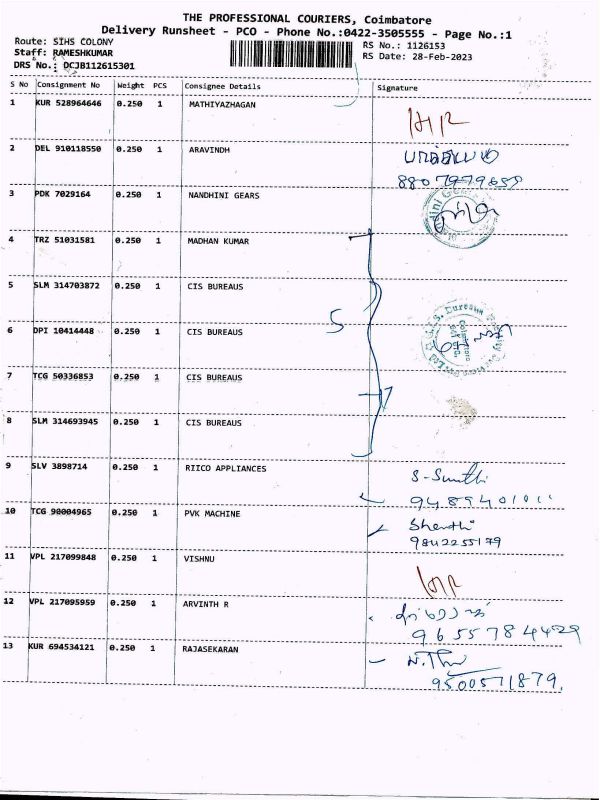 THE PROFESSIONAL COURIERS, Coimbatore
Delivery Runsheet - PCO - Phone No.:0422-3505555 - Page No.:1
Route: SIHS COLONY
Staff: RAMESHKUMAR
DRS No.: DCJB112615301
RS No.: 1126153
RS Date: 28-Feb-2023
S No Consignment No Weight PCS Consignee Details Signature
1 KUR 528964646 0.250 1 MATHIYAZHAGAN
2 DEL 910118550 0.250 1 ARAVINDH
3 PDK 7029164 0.250 1 NANDHINI GEARS
4 TRZ 51031581 0.250 1 MADHAN KUMAR
5 SLM 314703872 0.250 1 CIS BUREAUS
5
6 DPI 10414448 0.250 1 CIS BUREAUS
7 TCG 50336853 0.250 1 CIS BUREAUS
8 SLM 314693945 0.250 1 CIS BUREAUS
9 SLV 3898714 0.250 1 RIICO APPLIANCES
10 TCG 90004965 0.250 1 PVK MACHINE
Shenthi
9842255179
11 VPL 217099848 0.250 1 VISHNU
12 VPL 217095959 0.250 1 ARVINTH R
9655784429
13 KUR 694534121 0.250 1 RAJASEKARAN
9500571879.